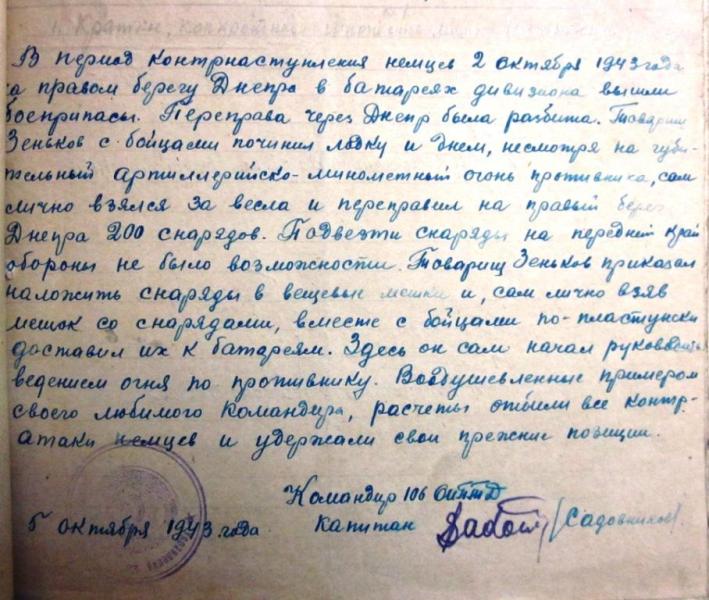 1. Краткое, конкретное
В период контрнаступления немцев 2 октября 1943 года
а правом берегу Днепра в батареях дивизиона вышли
боеприпасы. Переправа через Днепр была разбита. Товарищ
Зеньков с бойцами починил лодку и днем, несмотря на губи-
тельный артиллерийско-минометный огонь противника, сам
лично взялся за весла и переправил на правый берег
Днепра 200 снарядов. Подвезти снаряды на передний край
обороны не было возможности. Товарищ Зеньков приказал
наложить снаряды в вещевые мешки и, сам лично взяв
мешок со снарядами, вместе с бойцами по-пластунски
доставил их к батареям. Здесь он сам начал руководить
ведением огня по противнику. Воодушевленные примером
своего любимого командира, расчеты отбили все контр-
атаки немцев и удержали свои прежние позиции.
Командир 106 ОИПТД
5 октября 1943 года капитан /Садовников/